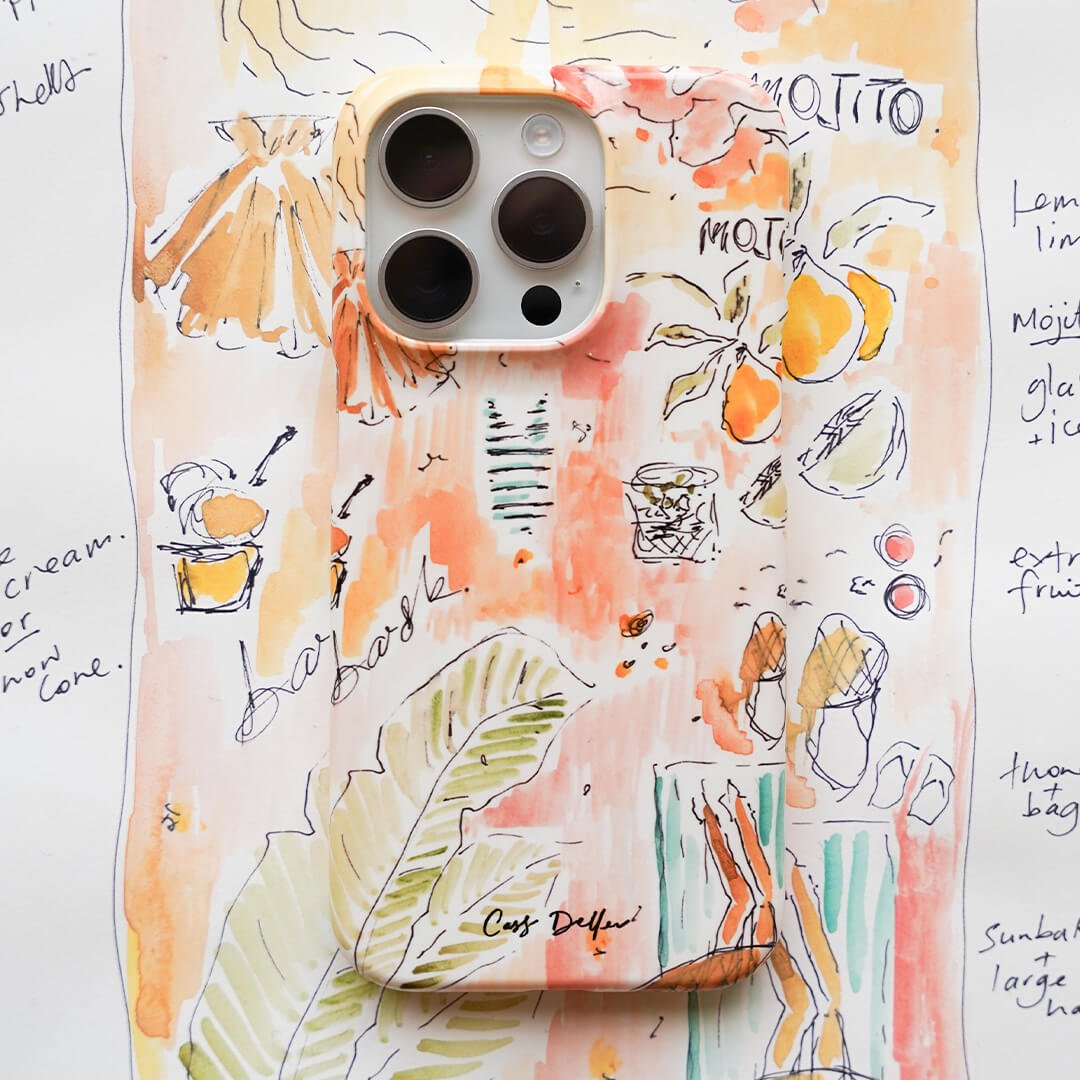 shells
MOJITO.
MOJI
Lem
lim
Mojit
gla
+ice
cream.
or
now
cone.
bar
bask.
extr
fruit
thon
+
bag
Cass Deller
Sunba
+
large
ha